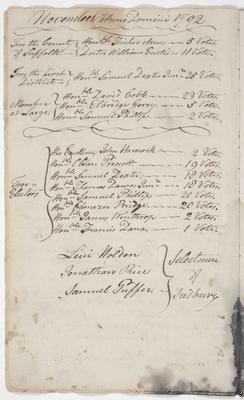 November Anno Domini 1792
For the County of Suffolk { Honble Fisher Ames, — 5 Votes
Doctr William Eustis — 11 Votes
For the first District { Honble Samuel Dexter Junr 25 Votes
Member at Large { Honble David Cobb — 23 Votes
Honble Elbridge Gerry — 5 Votes
Honble Samuel Phillips — 2 Votes
For Electors { His Excellency John Hancock — 2 Votes
Honble Oliver Prescott — 19 Votes
Honble Samuel Dexter — 18 Votes
Honble Thomas Dawes Junr — 18 Votes
Honble Samuel Phillips 20 Votes
Honble Ebenezer Bridge — 20 Votes
Honble James Winthrop — 2 Votes
Honble Francis Dana — 1 Vote
Levi Holden
Jonathan Rice
Samuel Puffer
Selectmen of Sudbury